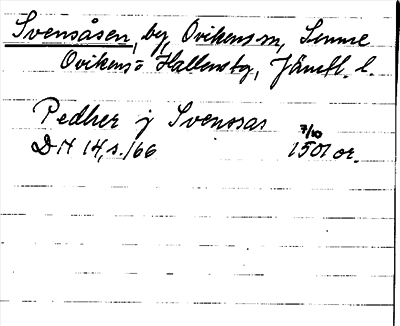 Svensåsen, by, Ovikens sn, Sunne
Ovikens o Hallens tg, Jämtl. l.
Pedher j Svenosas
DN 14, s. 166 7/10 1501 or.